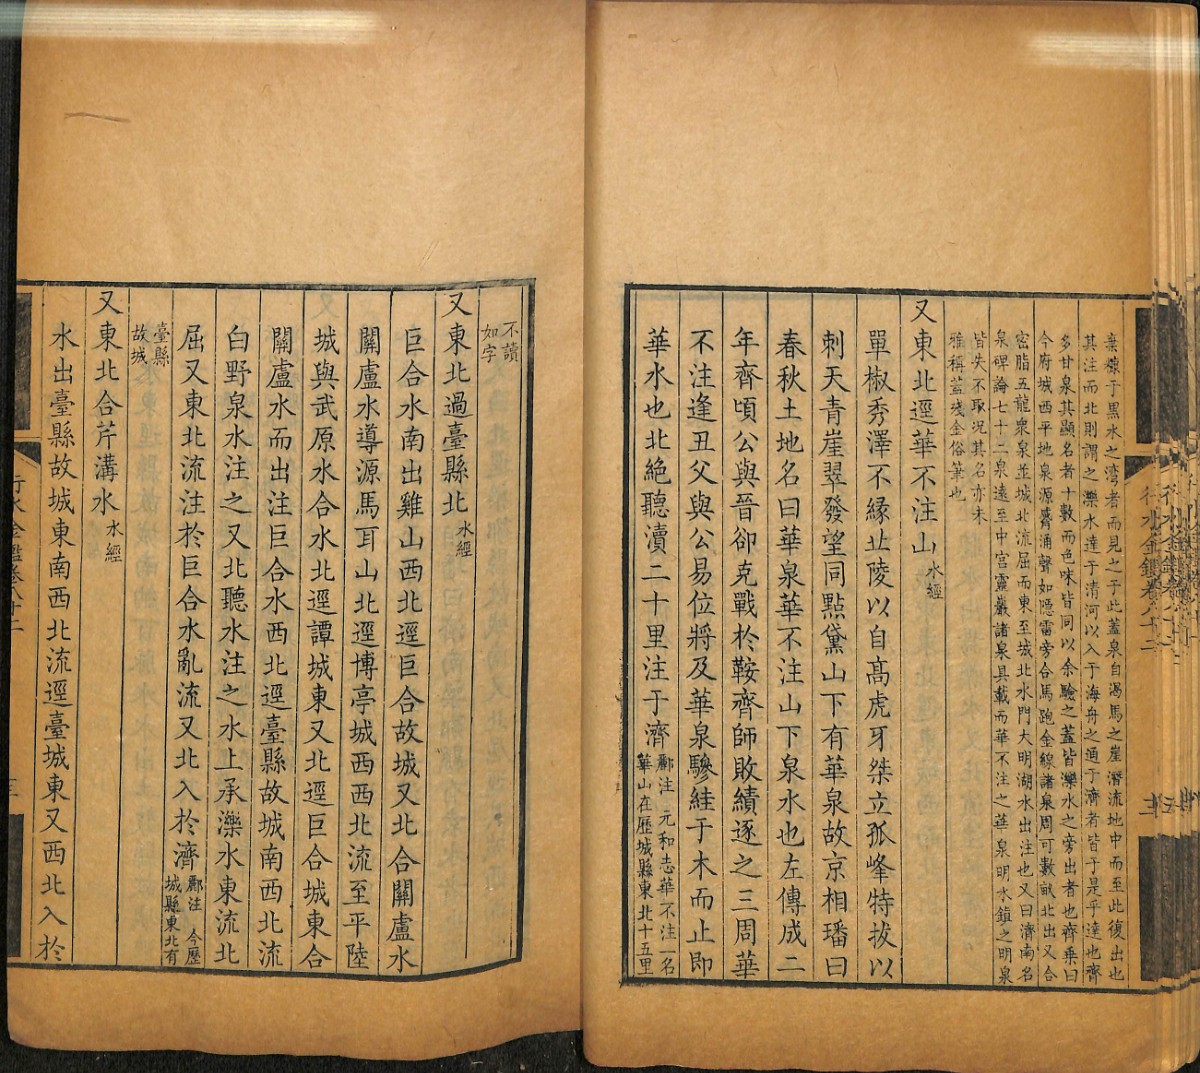 棄糠于黒水之湾者而見之于此葢泉自渴馬之崖潛流地中而至此復出也
其注而北則謂之濼水達于清河以入于海舟之通于濟者皆于是乎達也齊
多甘泉其顯名者十數而色味皆同以余驗之葢皆濼水之旁出者也齊乘曰
今府城西平地泉源觱涌聲如隱雷旁合馬跑金線諸泉周可數畝北出又合
密脂五龍衆泉並城北流屈而東至城北水門大明湖水出注也又曰濟南名
泉碑論七十二泉遠至中宮靈巖諸泉具載而華不注之華泉明水鎮之明泉
皆失不取况其名亦未
雅稱葢殘金俗筆也
又東北逕華不注山水經
單椒秀澤不縁丠陵以自高虎牙桀立孤峰特拔以
刺天青崖翠發望同點黛山下有華泉故京相璠曰
春秋土地名曰華泉華不注山下泉水也左傳成二
年齊頃公與晉卻克戰於鞍齊師敗績逐之三周華
不注逢丑父與公易位將及華泉驂絓于木而止即
華水也北絶聽瀆二十里注于濟酈注 元和志華不注一名
華山在歴城縣東北十五里
不讀
如字
又東北過臺縣北水經
巨合水南出雞山西北逕巨合故城又北合關盧水
關盧水導源馬耳山北逕博亭城西西北流至平陸
城與武原水合水北逕譚城東又北逕巨合城東合
關盧水而出注巨合水西北逕臺縣故城南西北流
白野泉水注之又北聽水注之水上承濼水東流北
屈又東北流注於巨合水亂流又北入於濟酈注 今歴
城縣東北有
臺縣
故城
又東北合芹溝水水經
水出臺縣故城東南西北流逕臺城東又西北入於
行水金鑑卷八十二
三